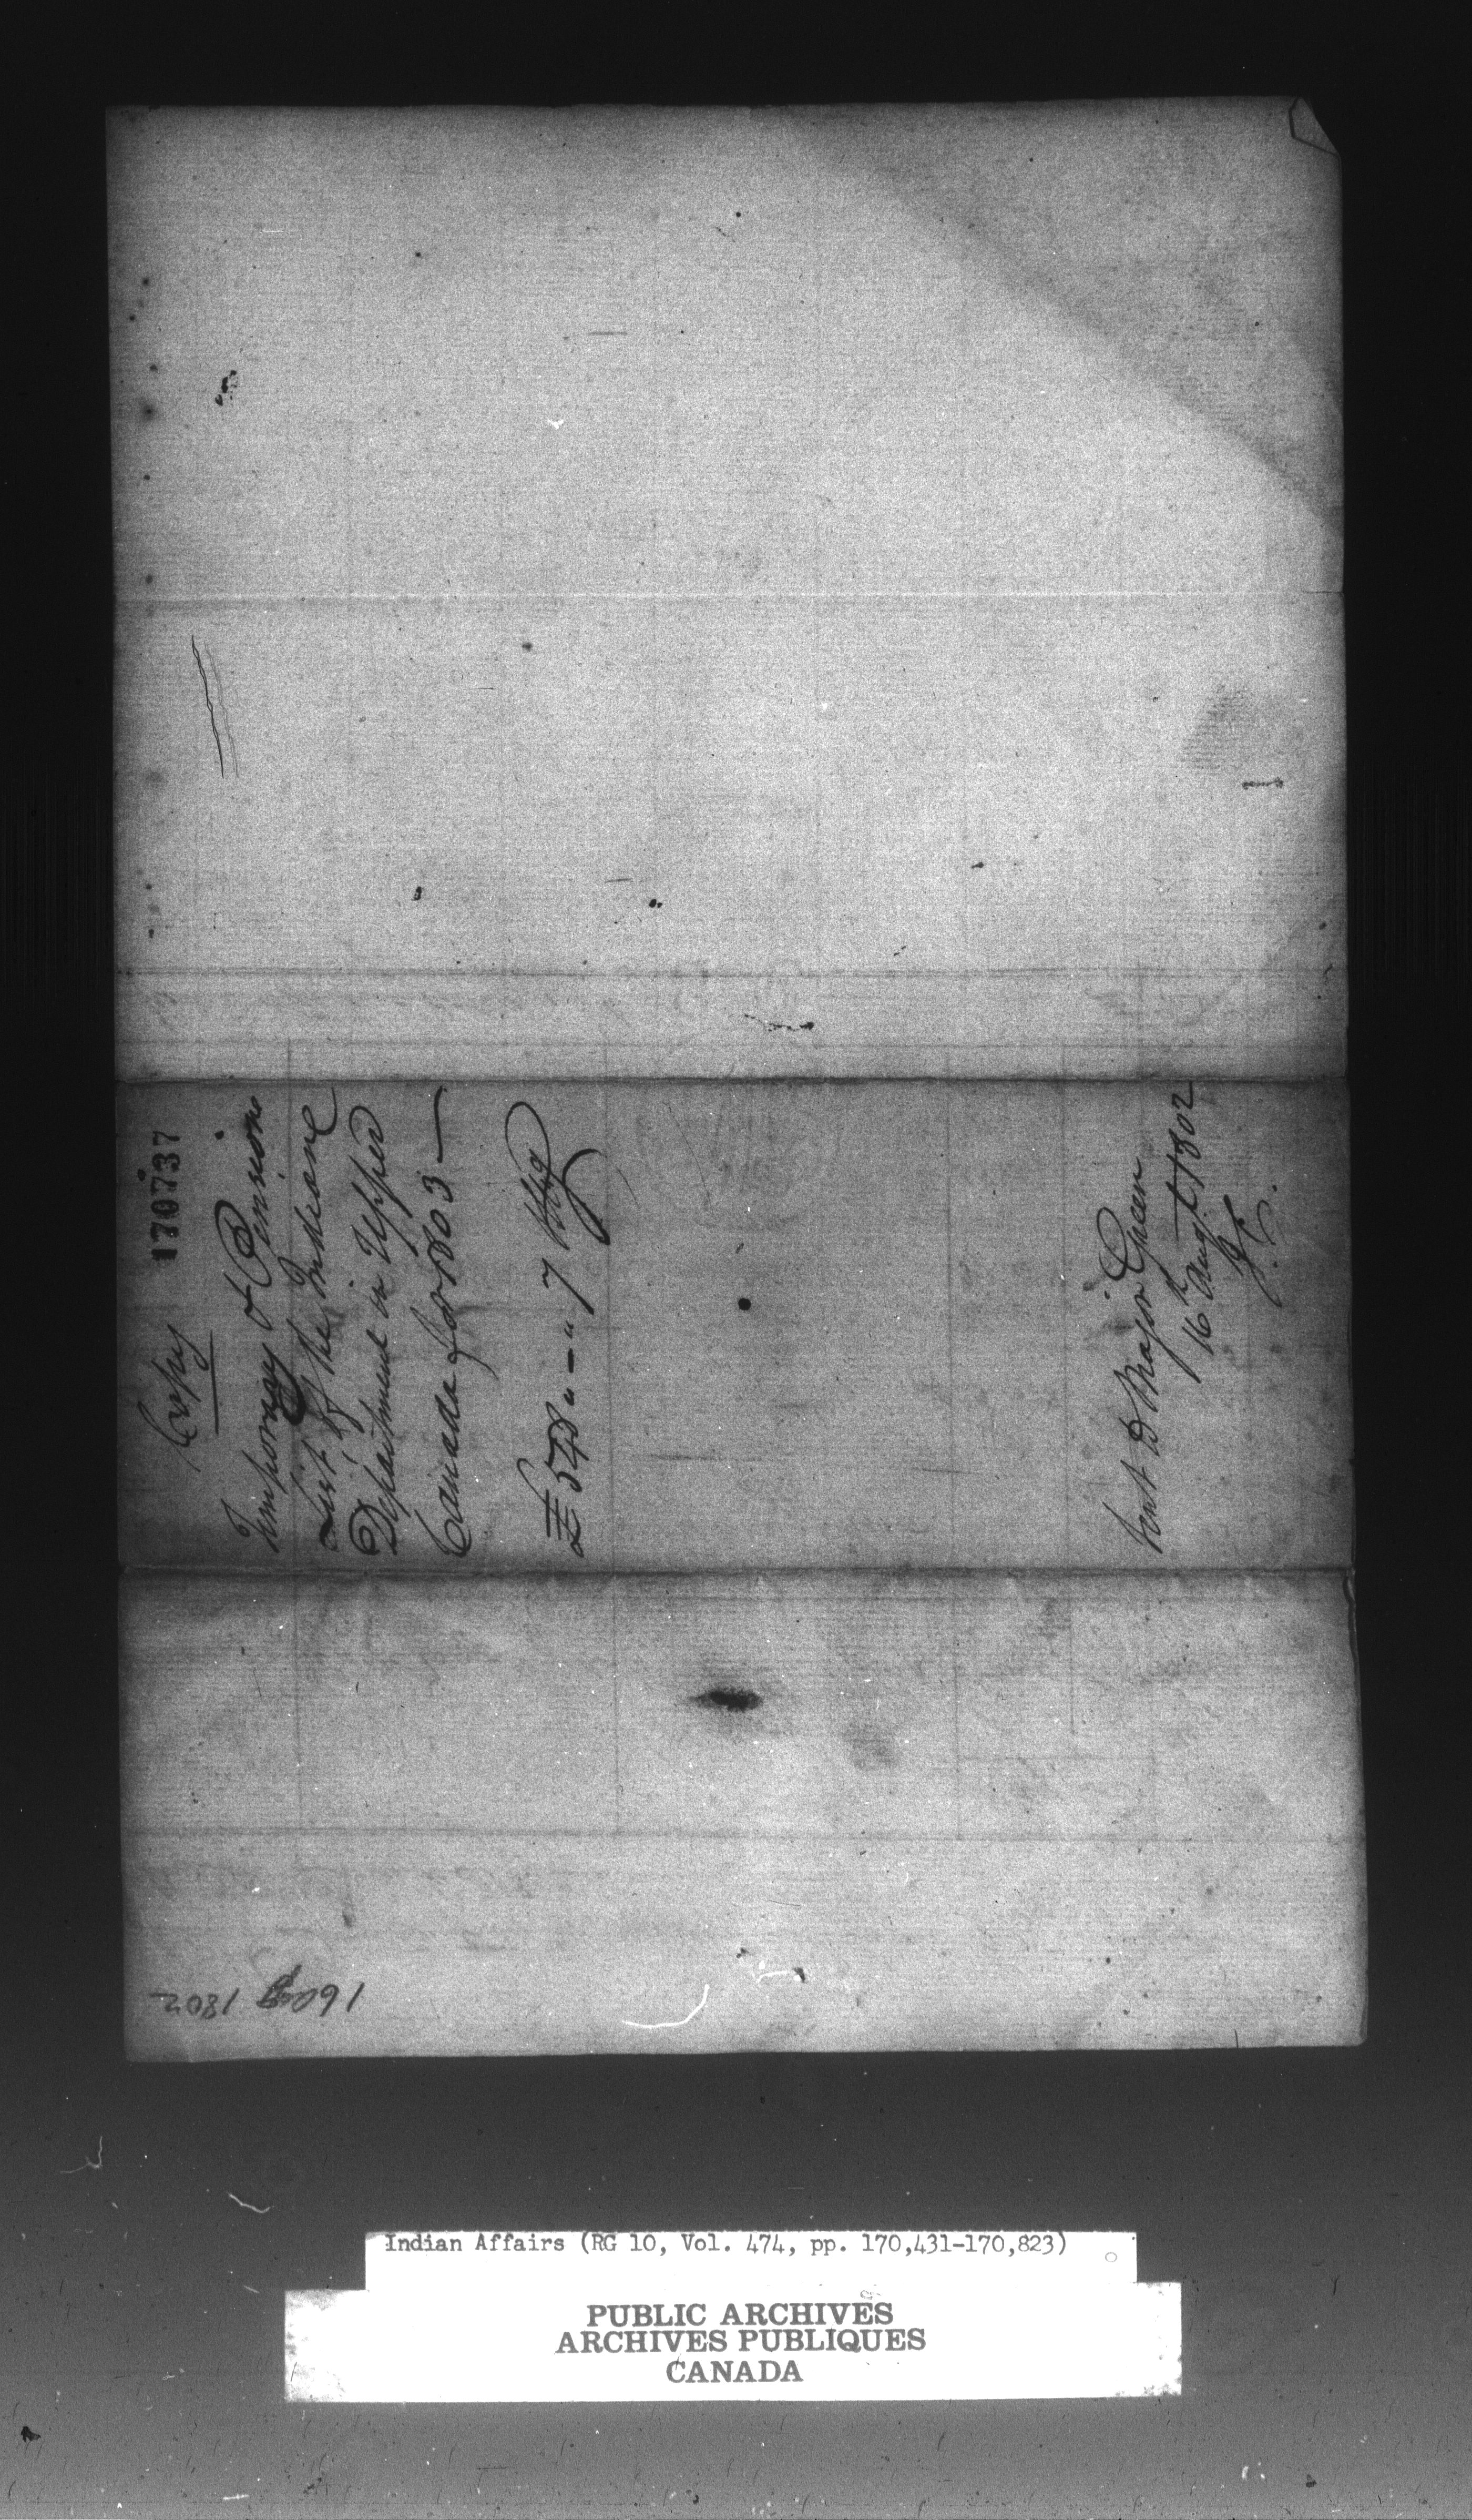 170737
Copy
Temporary & Pension
List of the Indian
Department in Upper
Canada for 1803 —
£ 548 " — " 7 Stg
Sent to Major Green
16th Augt 1802
1802
Indian Affairs (RG 10, Vol. 474, pp. 170,431-170,823)
PUBLIC ARCHIVES
ARCHIVES PUBLIQUES
CANADA